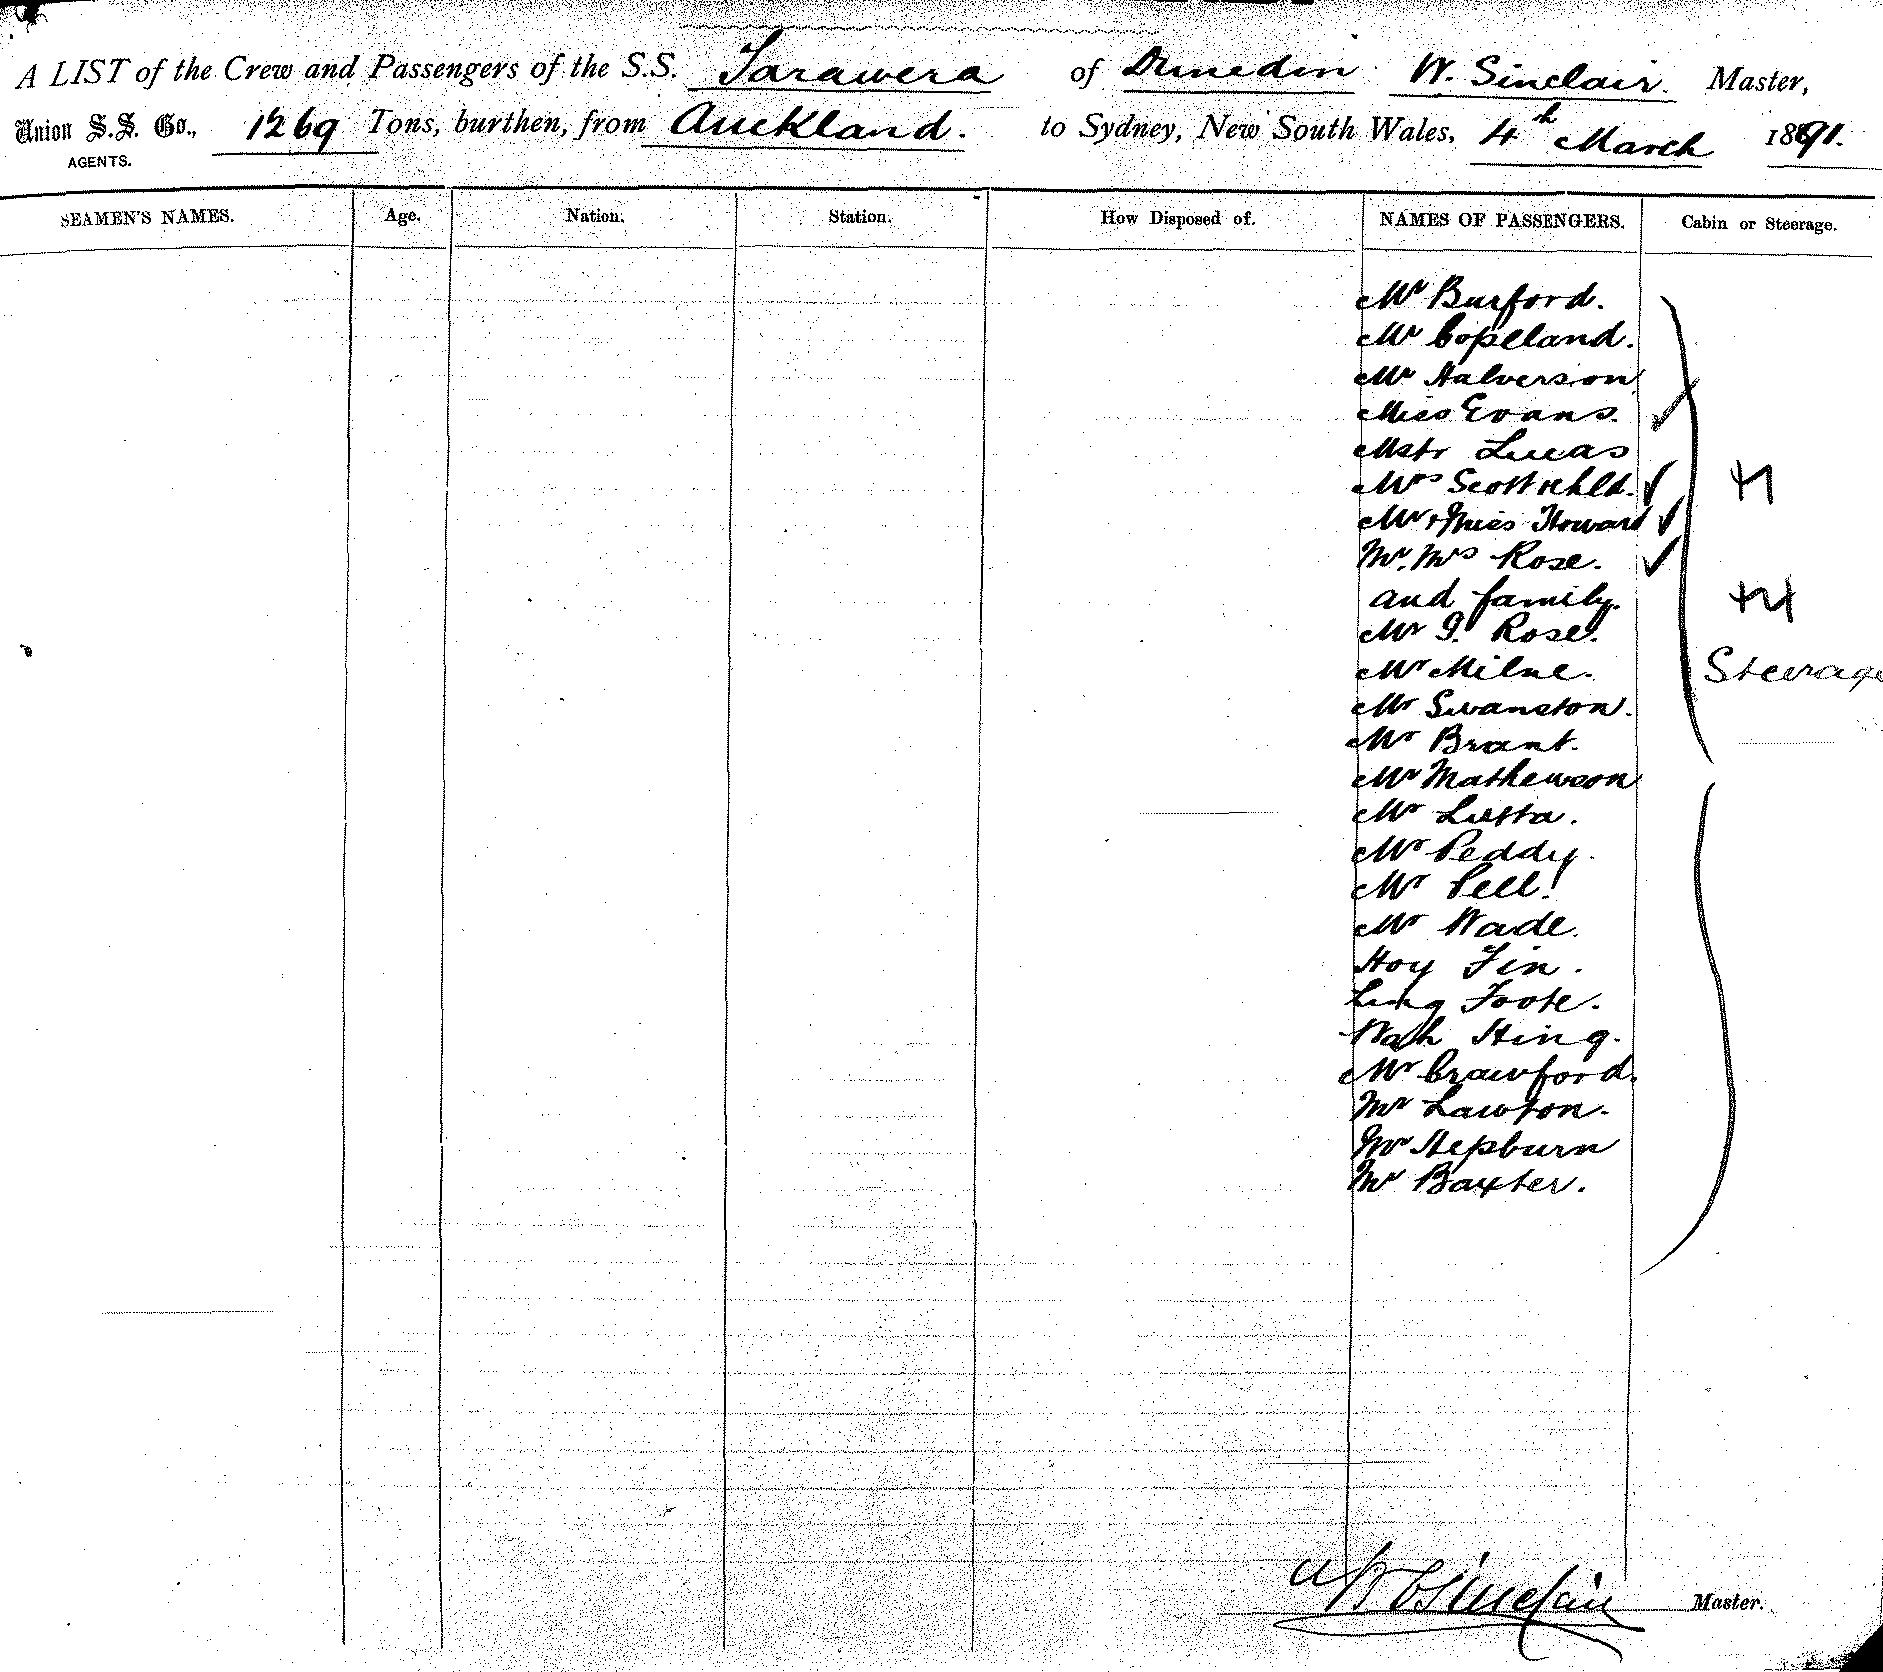 A LIST of the Crew and Passengers of the S.S. Tarawera of Dunedin W. Sinclair. Master,
Union S.S. Co., 1269 Tons, burthen, from Auckland. to Sydney, New South Wales, 4th March 1891.
AGENTS.
SEAMEN'S NAMES. Age. Nation. Station. How Disposed of. NAMES OF PASSENGERS. Cabin or Steerage.
Mr Burford.
Mr Copeland.
Mr Halverson
Miss Evans.
Mstr Lucas
Mrs Scott & chld.
Mr & Miss Howard
Mr. Mrs Rose.
and family.
Mr I. Rose.
Mr Milne.
Steerage
Mr Swanston.
Mr Brant.
Mr Mathewson
Mr
Mr Peddy.
Mr Pell.
Mr Wade.
Hoy Fin.
Foote.
Wah Hing.
Mr Crawford.
Mr Lawton.
Mr Hepburn
Mr Baxter.
W Sinclair Master.